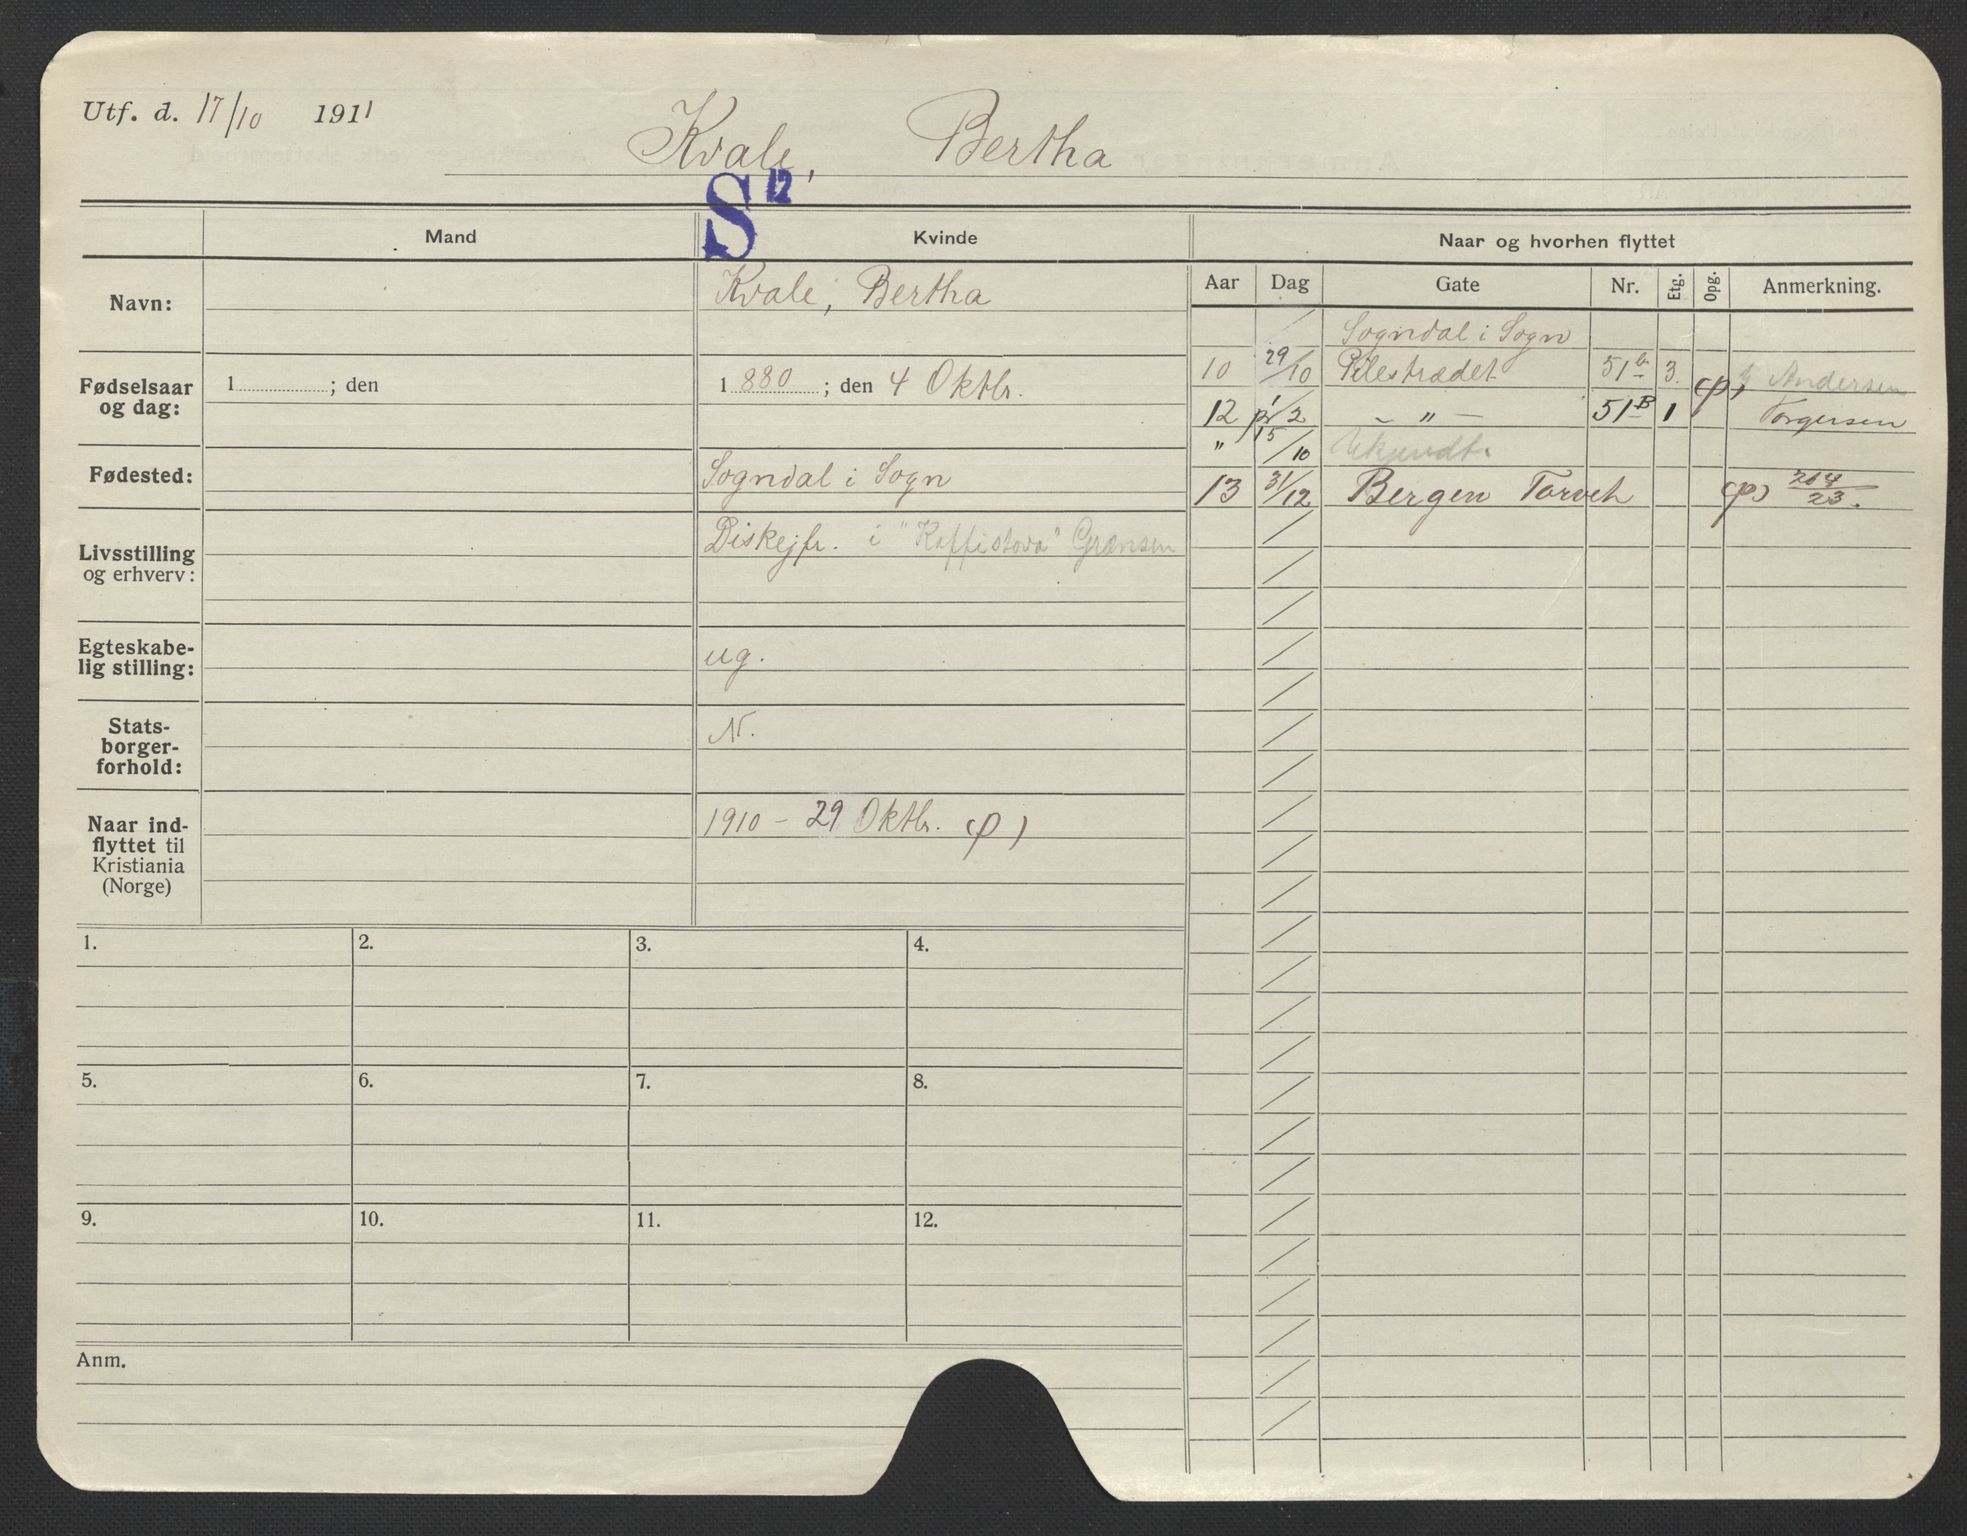 Utf. d. 17/10 1911
Kvale, Bertha
S 12
Mand Kvinde Naar og hvorhen flyttet
Aar Dag Gate Nr. Etg. Opg. Anmerkning.
Navn: Kvale, Bertha
Fødselsaar og dag: 1 ; den 1 880 ; den 4 Oktbr.
Fødested: Sogndal i Sogn
Livsstilling og erhverv: Diskejfr. i "Kaffistova" Grænsen
Egteskabe-
lig stilling: ug.
Stats-
borger-
forhold: N.
Naar ind-
flyttet til
Kristiania
(Norge) 1910 - 29 Oktbr. (p)
Sogndal i Sogn
10 29/10 Pilestrædet 51b 3. (p) Andersen
12 pr 1/2 - " - 51B 1 Torgersen
" 15/10 Ukjendt.
13 31/12 Bergen Torvet (p) 264/23.
1. 2. 3. 4.
5. 6. 7. 8.
9. 10. 11. 12.
Anm.